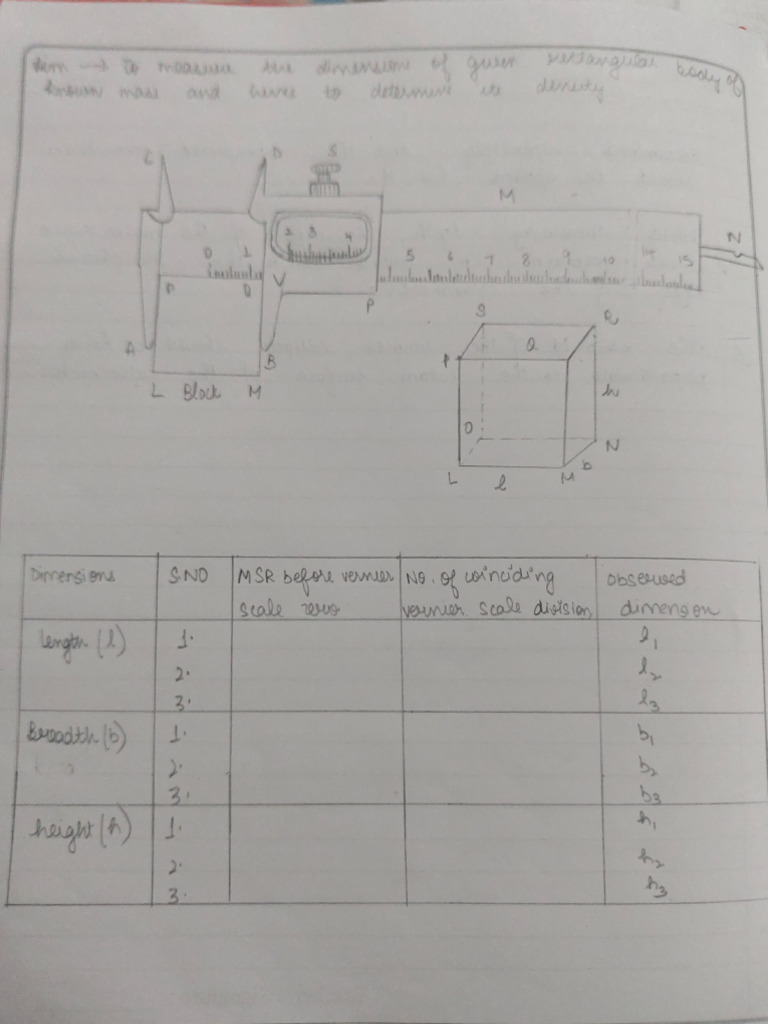 Aim → To measure the dimensions of given rectangular body of
known mass and hence to determine its density
C D S
M
N
0 1 2 3 4 5 6 7 8 9 10 14 15
P Q V
P
A B
L Block M
S R
P Q
h
O N
L l M b
Dimensions S.NO MSR before vernier No. of coinciding Observed
scale zero vernier scale division dimension
length (l) 1. l1
2. l2
3. l3
Breadth (b) 1. b1
2. b2
3. b3
height (h) 1. h1
2. h2
3. h3